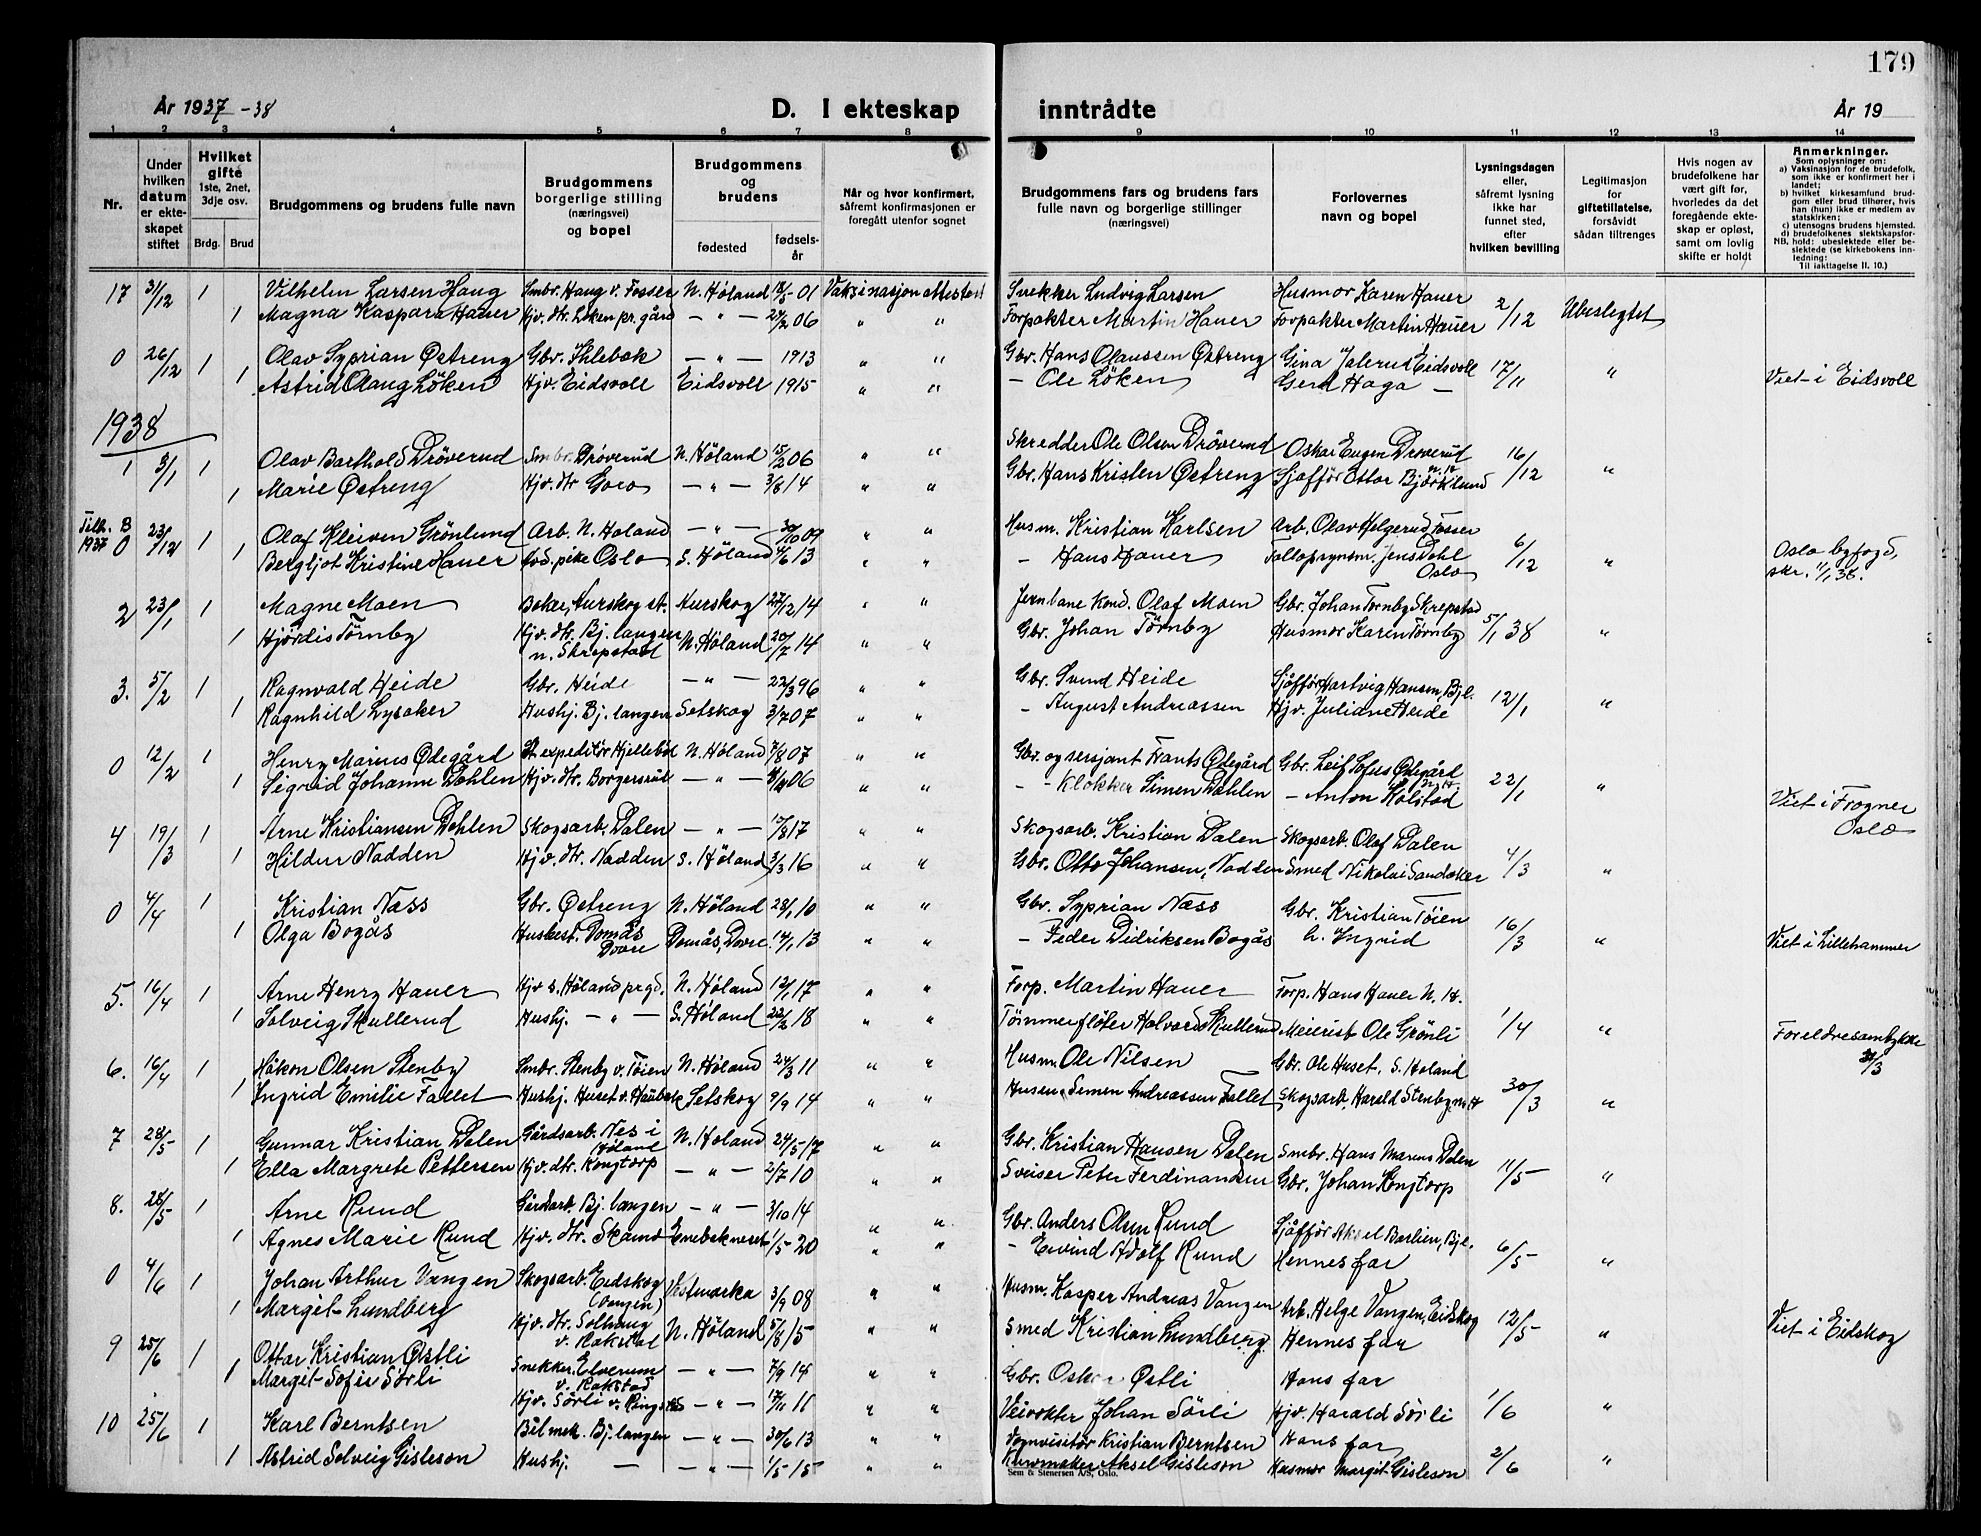 179
År 1937-38
D. I ekteskap
inntrådte
År 19
1 2 3 4 5 6 7 8 9 10 11 12 13 14
Nr.
Under hvilken datum er ekteskapet stiftet
Hvilket gifte 1ste, 2net, 3dje osv.
Brdg. Brud
Brudgommens og brudens fulle navn
Brudgommens borgerlige stilling (næringsvei) og bopel
Brudgommens og brudens
fødested
fødselsår
Når og hvor konfirmert, såfremt konfirmasjonen er foregått utenfor sognet
Brudgommens fars og brudens fars fulle navn og borgerlige stillinger (næringsvei)
Forlovernes navn og bopel
Lysningsdagen eller, såfremt lysning ikke har funnet sted, efter hvilken bevilling
Legitimasjon for giftetillatelse, forsåvidt sådan tiltrenges
Hvis nogen av brudefolkene har vært gift før, hvorledes da det foregående ekteskap er opløst, samt om lovlig skifte er holdt
Anmerkninger.
Som oplysninger om:
a) Vaksinasjon for de brudefolk, som ikke er konfirmert her i landet;
b) hvilket kirkesamfund brudgom eller brud tilhører, hvis han (hun) ikke er medlem av statskirken;
c) utensogns brudens hjemsted.
d) brudefolkenes slektskapsforhold: ubeslektede eller beslektede (se kirkebokens innledning:
NB.
Til iakttagelse II. 10.)
17 31/12 1 Vilhelm Larsen Haug Smbr. Haug v. Fosser N. Høland 18/5-01 Vaksinasjonattestert Snekker Ludvig Larsen Husmor Karen Hauer 2/12 Ubeslegtet
1 Magna Kaspara Hauer Hjv. dtr. Løken pr. gård — " — 24/2 06 " " Forpakter Martin Hauer Forpakter Martin Hauer
0 26/12 1 Olav Syprian Østreng Gbr. Ihlebæk — " — 1913 " " Gbr. Hans Olaussen Østreng Gina Jalerud Eidsvoll 17/11 "
1 Astrid Olaug Löken Hjv. Eidsvoll Eidsvoll 1915 " " — Ole Löken Gerd Haga — Viet i Eidsvoll
1938
1 3/1 1 Olav Barthold Dröverud Smbr. Dröverud N. Höland 15/2 06 " " Skredder Ole Olsen Dröverud Oskar Eugen Dröverud N. H. 16/12 "
1 Marie Østreng Hjv. dtr. Goro — " — 3/8 14 " " Gbr. Hans Kristen Østreng Sjåffør Ottar Bjørklund
Tilh. B 1937 0 23/12 1 Olaf Kleiven Grönlund Arb. N. Høland — " — 30/10 09 " " Husm. Kristian Karlsen Arb. Olav Helgerud Fosser 6/12 "
1 Bergljot Kristine Hauer Oslo S. Høland 4/6 13 " " — Hans Hauer Jens Dahl Oslo Oslo byfogd, skr. 11/1 38.
2 23/1 1 Magne Moen Baker, Aurskog st. Aurskog 27/12 14 " " Jernbane kond. Olaf Moen Gbr. Johan Tørnby Skrepstad 5/1 38 "
1 Hjördis Törnby Hjv. dtr. Bj. langen n. Skrepstad N. Høland 20/7 14 " " Gbr. Johan Törnby Husmor Karen Tørnby
3. 5/2 1 Ragnvald Heide Gbr. Heide — " — 22/3 96 " " Gbr. Svend Heide Sjåffør Hartvig Hansen, Bjl. 12/1 "
1 Ragnhild Lysaker Hushj. Bj. langen Setskog 3/7 07 " " — August Andreassen Hjv. Juliane Heide
0 12/2 1 Henry Marius Ødegård St. expeditör Hjellebøl N. Høland 7/8 07 " " Gbr. og sersjant Frants Ødegård Gbr. Leif Sofus Ødegård N. H. 22/1 "
1 Sigrid Johanne Dahlen Hjv. dtr. Borgersrud — " — 06 " " — Klokker Simen Dahlen — Anton Kolstad Viet i Frogner Oslo
4 19/3 1 Arne Kristiansen Dahlen Skogsarb. Dalen — " — 17/8 17 " " Skogsarb. Kristian Dalen Skogsarb. Olaf Dalen 4/3 "
1 Hildur Nadden Hjv. dtr. Nadden S. Høland 3/3 16 " " Gbr. Otto Johansen, Nadden Smed Nikolai Sandaker
0 4/4 1 Kristian Næss Gbr. Østreng N. Høland 28/1 10 " " Gbr. Syprian Næss Gbr. Kristian Töien 16/3 "
1 Olga Bogås Husbest. Domås Dovre Domås, Dovre 14/1 13 " " — Peder Didriksen Bogås h. Ingrid Viet i Lillehammer
5. 16/4 1 Arne Henry Hauer Hjv s. Høland prgd. N. Høland 12/1 17 " " Forp. Martin Hauer Forp. Hans Hauer N. H. 1/4 "
1 Solveig Skullerud Hushj. — " — S. Høland 22/2 18 " " Tömmerfløter Halvard Skullerud Meierist Ole Grönli Foreldresamtykke 31/3
6. 16/4 1 Håkon Olsen Stenby Smbr. Stenby v. Töien N. Høland 24/3 11 " " Husm. Ole Nilsen Gbr. Ole Huset, S. Høland 30/3 "
1 Ingrid Emilie Fallet Hushj. Huset v. Haubak Setskog 9/9 14 " " Husm. Simen Andreassen Fallet Skogsarb. Harald Stenby n. H
7 28/5 1 Gunnar Kristian Dalen Gårdsarb. Nes i Høland N. Høland 24/5-17 " " Gbr. Kristian Hansen Dalen Smbr. Hans Marius Dalen 11/5 "
1 Ella Margrete Pettersen Hjv. dtr. Kongtorp — " — 2/7 10 " " Sveiser Peter Ferdinandsen Gbr. Johan Kongtorp
8. 28/5 1 Arne Rund Gårdsarb. Bj. langen — " — 3/10 14 " " Gbr. Anders Olsen Rund Sjåffør Aksel Barlien, Bjl. 6/5 "
1 Agnes Marie Rund Hjv. dtr. Skamo Enebakneset 1/5-20 " " — Eivind Adolf Rund Hennes far
0 4/6 1 Johan Arthur Vangen Skogsarb. Eidskog (Vangen) Vestmarka 3/9 08 " " Husm. Kasper Andreas Vangen Arb. Helge Vangen, Eidskog 12/5 "
1 Margit Lundberg Hjv. dtr. Solhaug v. Rakstad N. Høland 5/8 15 " " Smed Kristian Lundberg Hennes far Viet i Eidskog
9 25/6 1 Ottar Kristian Østli Snekker Elverum v. Rakstad — " — 7/9 14 " " Gbr. Oskar Østli Hans far 1/6 "
1 Margit Sofie Sörli Hjv. Sörli v. — " — 17/11 11 " " Veivokter Johan Sörli Hjv. Harald Sörli
10 25/6 1 Karl Berntsen Bilmek. Bj. langen — " — 30/6 13 " " Kristian Berntsen Hans far 2/6 "
1 Astrid Solveig Gisleson Hushj. — — " — 1/5-15 " " Aksel Gisleson Husmor Margit Gisleson
Sem & Stenersen A/S, Oslo.